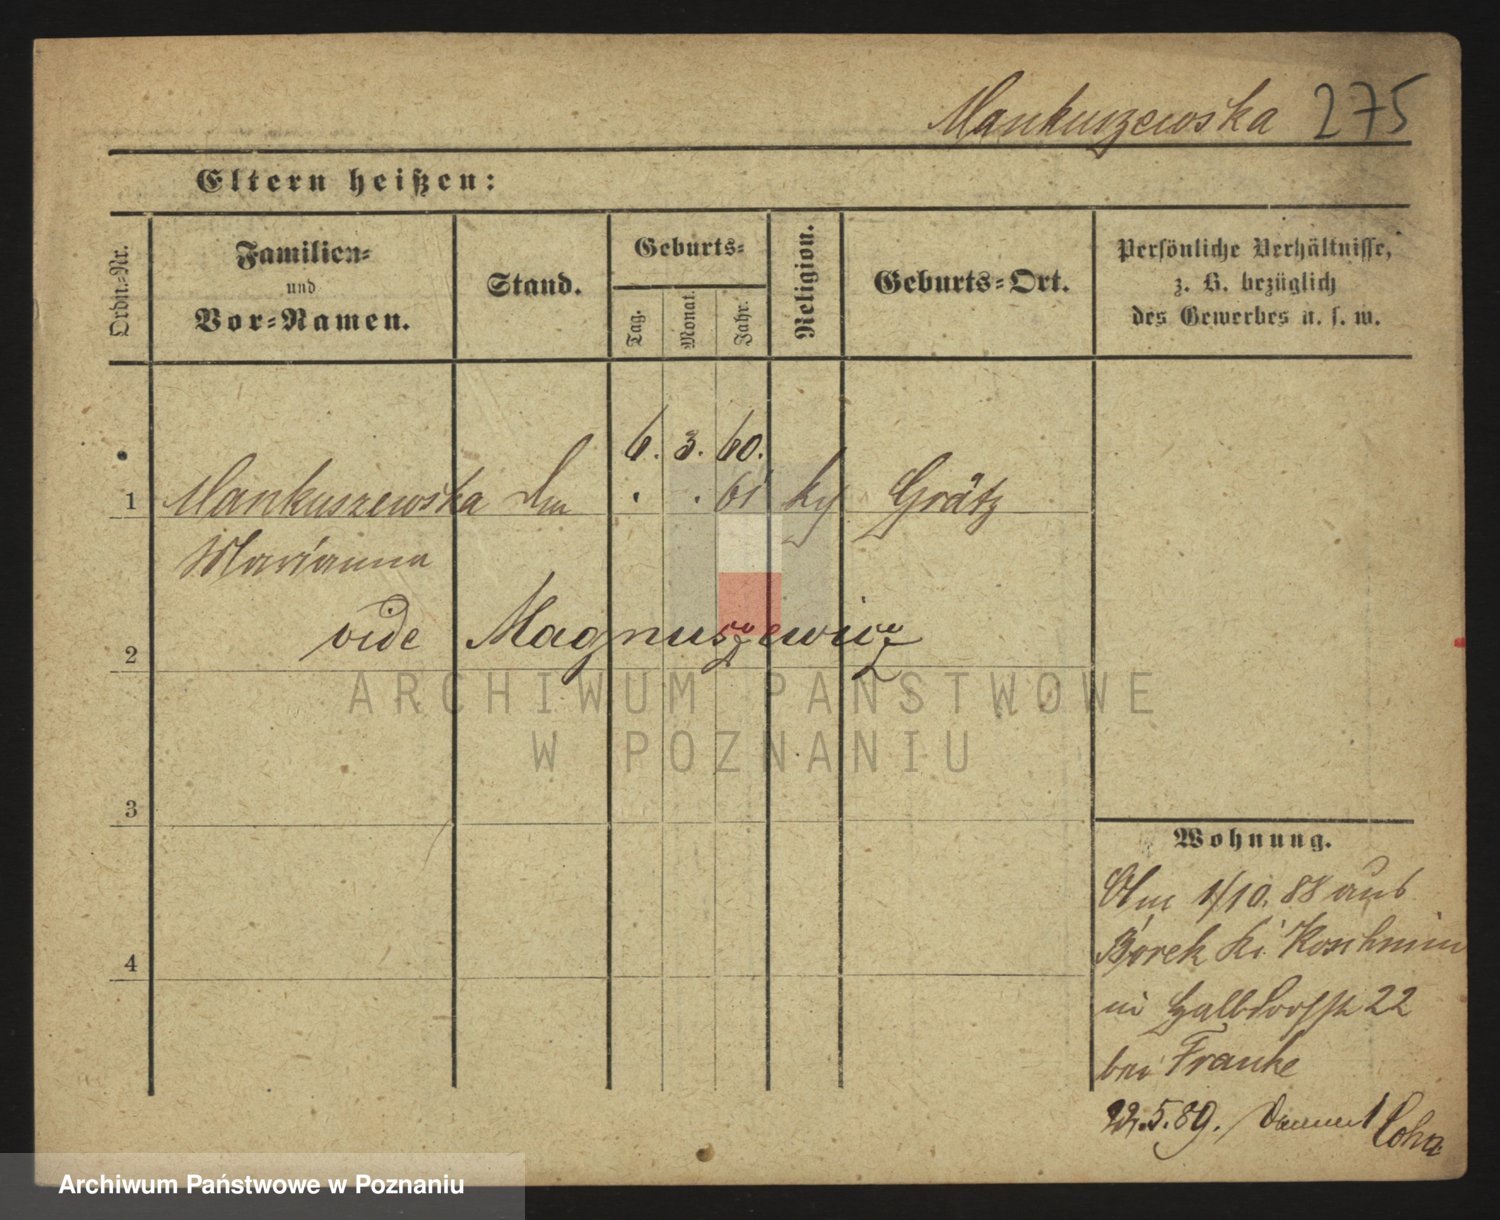 Mankuszewska 275
Eltern heißen:
Ordn.-Nr.
Familien-
und
Vor-Namen.
Stand.
Geburts-
Tag.
Monat.
Jahr.
Religion.
Geburts-Ort.
Persönliche Verhältnisse,
z. B. bezüglich
des Gewerbes u. s. w.
6. 3. 60.
1 Mankuszewska . . 61 Grätz
Marianna
2 vide Magnuszewicz
ARCHIWUM PAŃSTWOWE
W POZNANIU
3
Wohnung.
1/10. 88 aus
4
Borek Koschmin
in Halbdorfstr 22
bei Franke
22.5.89. Cohn
Archiwum Państwowe w Poznaniu